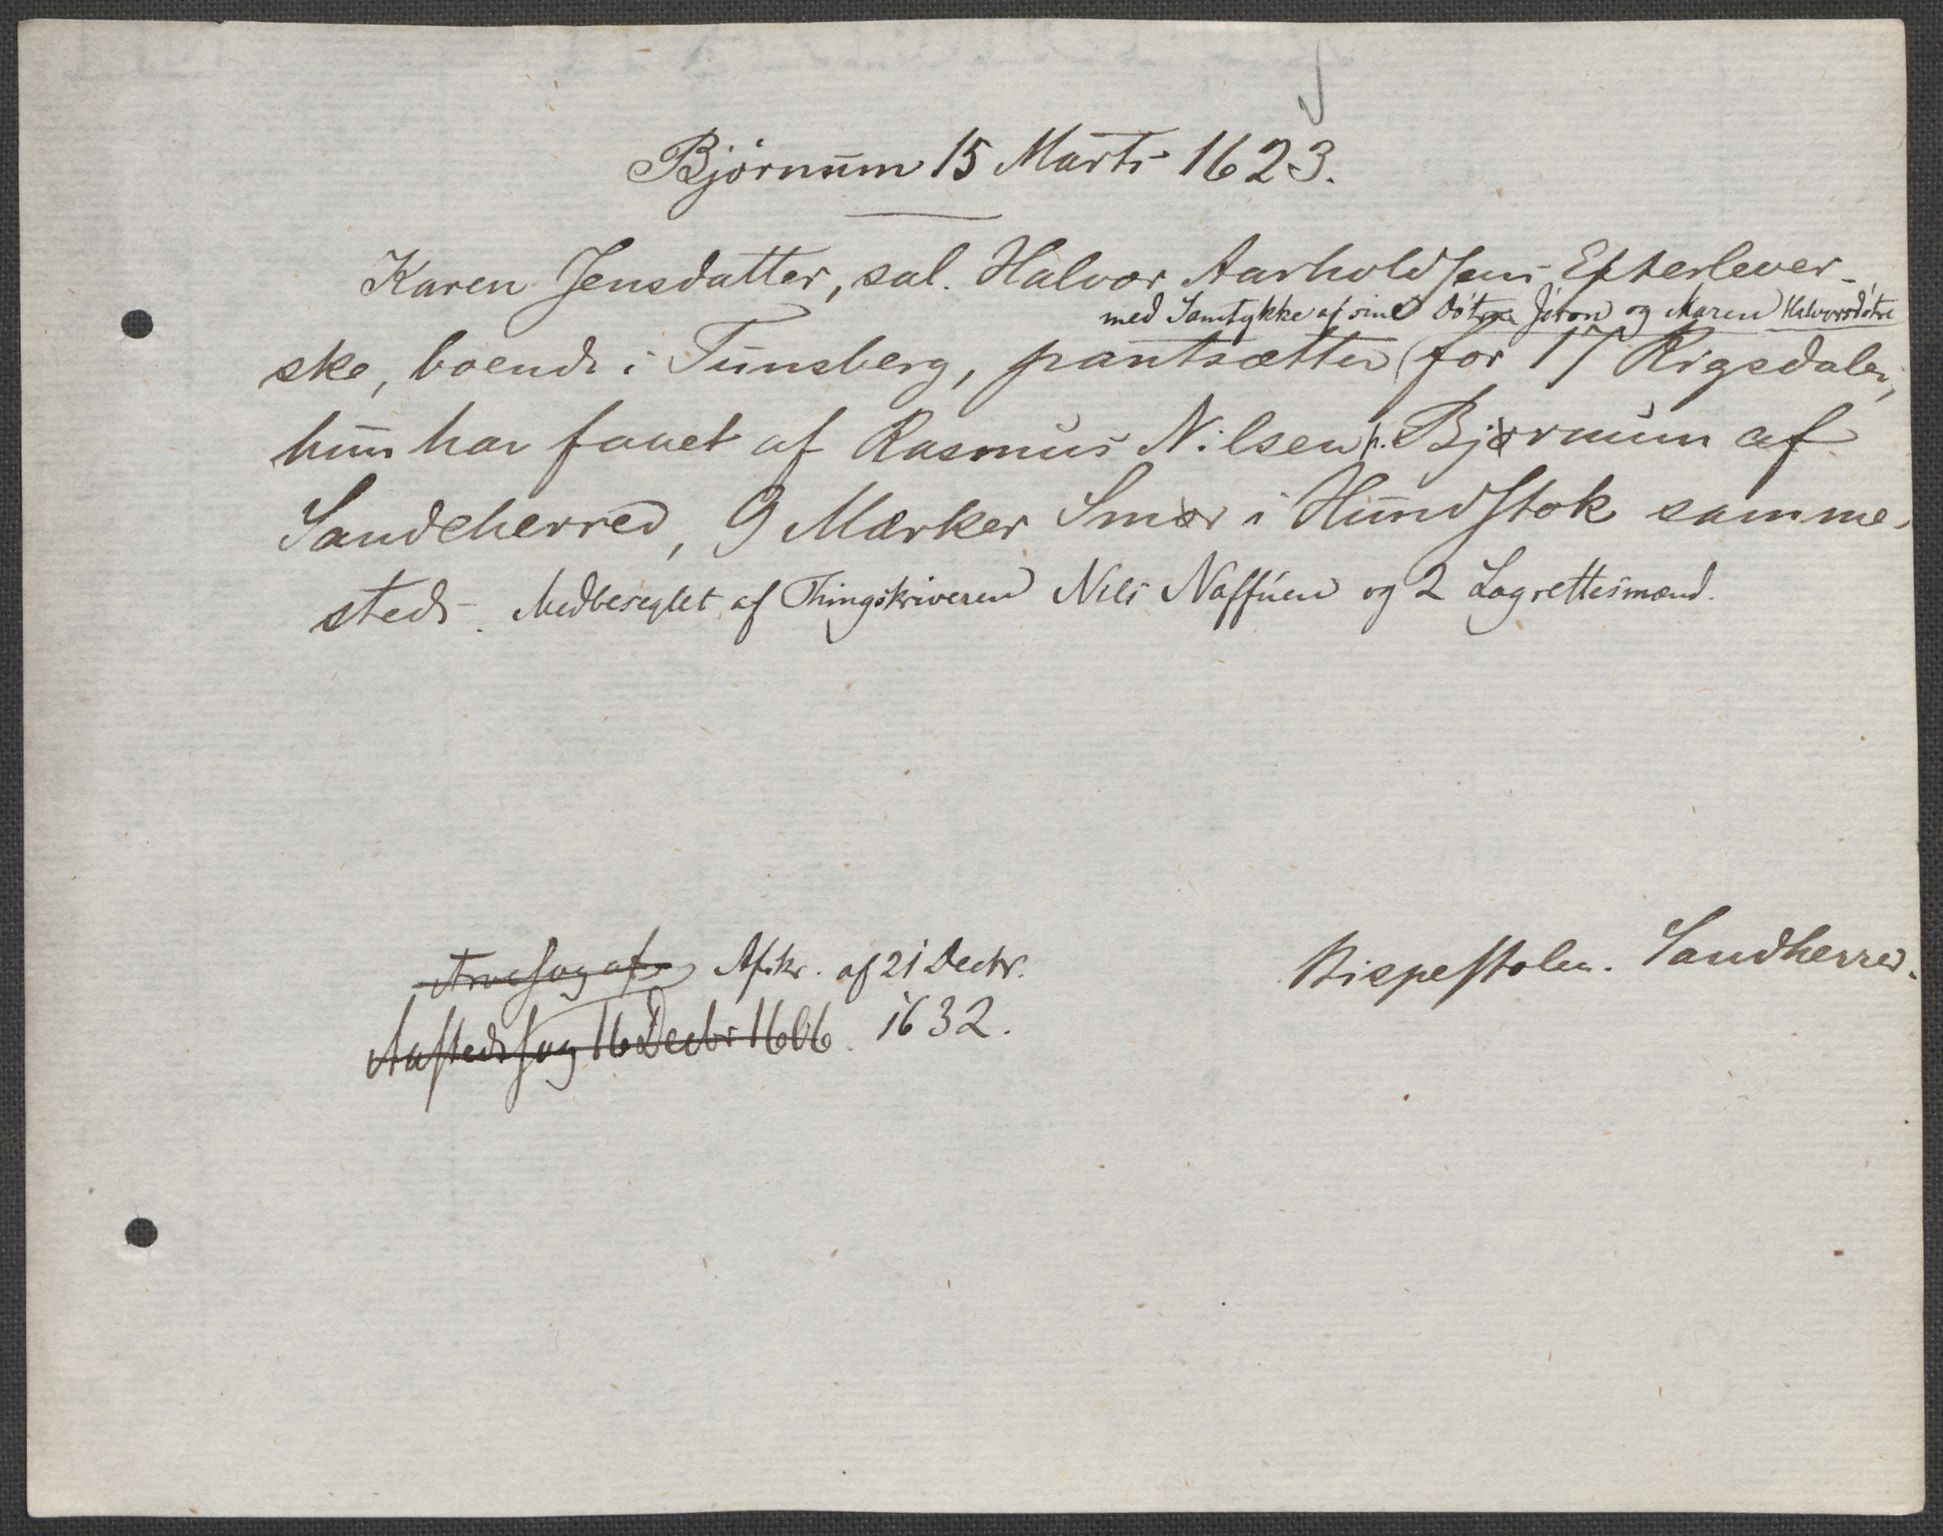 Bjørnum 15 Marts 1623.
Karen Jensdatter, sal. Halvor Aarholdsens Efterlever-
med Samtykke af sine Døtre Jøron og Maren Halvorsdøtre
ske, boende i Tunsberg, pantsætter (for 17 Rigsdaler,
hun har faaet af Rasmus Nilsen p. Bjørnum af
Sandeherred, 9 Mærker Smør i Hundstok samme-
steds. Medbeseglet af Thingskriveren Nils Naffuen og 2 Lagrettesmænd.
Afskr. af 21 Decbr.
Aastedssag 16 Decbr 1606. 1632.
Bispestolen. Sandherred.